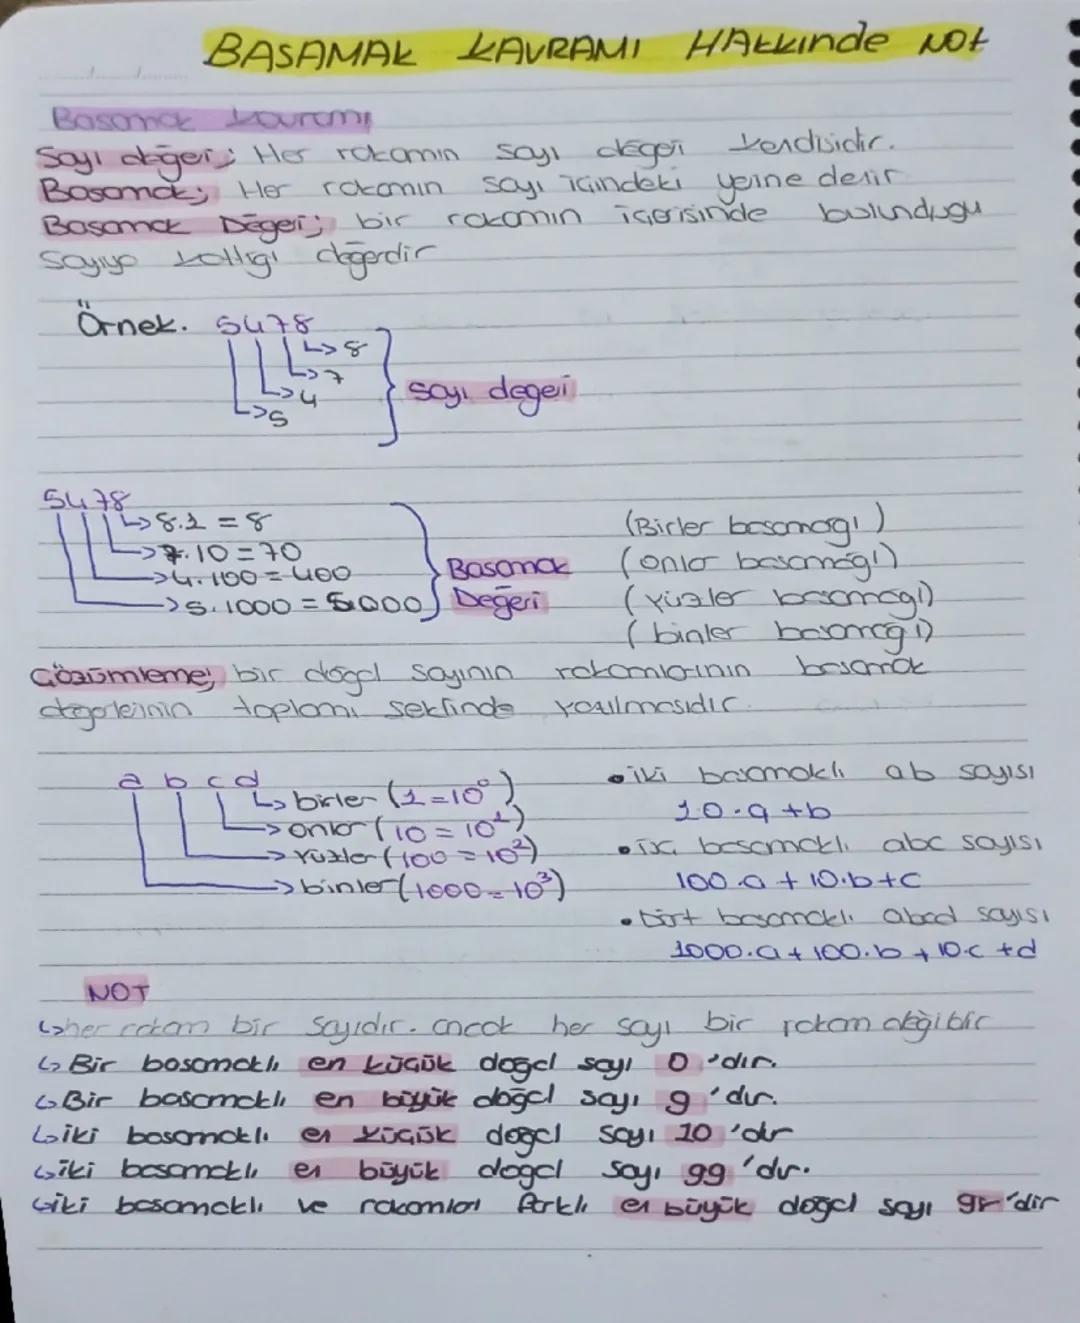 BASAMAK KAVRAMI HAKKINDE NOT
Basamak kavramı
Sayı değeri; Her rakamın sayı değeri kendisidir.
Basamak; Her rakamın sayı içindeki yerine denir
Basamak Değeri; bir rakamın içerisinde bulunduğu
sayıya kattığı değerdir
Örnek. 5478
8
7
4
5
sayı değeri
5478
8.1 = 8 (Birler basamağı)
7.10 = 70 (onlar basamağı)
4.100 = 400 (yüzler basamağı)
5.1000 = 5000 (binler basamağı)
Basamak
Değeri
Çözümleme; bir doğal sayının rakamlarının basamak
değerlerinin toplamı şeklinde yazılmasıdır.
a b c d
birler (1=10⁰)
onlar (10 = 10¹)
yüzler (100 = 10²)
binler (1000 = 10³)
• iki basamaklı ab sayısı
10.a + b
• üç basamaklı abc sayısı
100.a + 10.b + c
• dört basamaklı abcd sayısı
1000.a + 100.b + 10.c + d
NOT
↳ her rakam bir sayıdır. ancak her sayı bir rakam değildir
↳ Bir basamaklı en küçük doğal sayı 0 'dır.
↳ Bir basamaklı en büyük doğal sayı 9 'dur.
↳ iki basamaklı en küçük doğal sayı 10 'dur
↳ iki basamaklı en büyük doğal sayı 99 'dur.
↳ iki basamaklı ve rakamları farklı en büyük doğal sayı 98 'dir